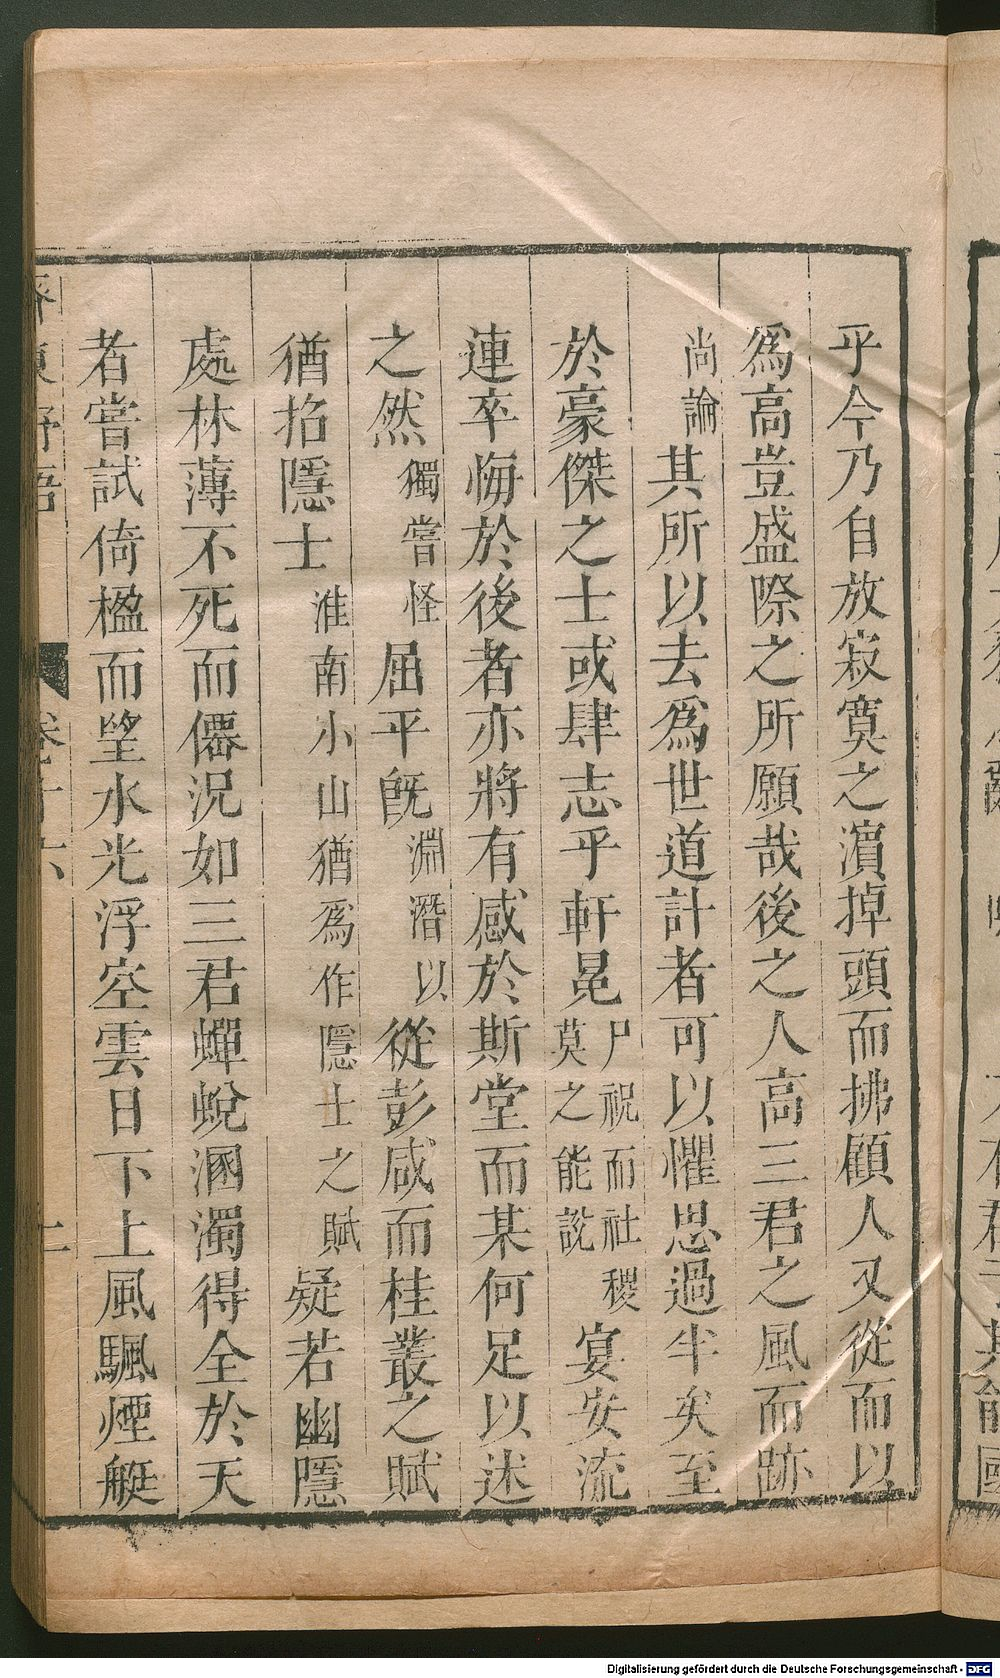 乎今乃自放寂寞之濵掉頭而拂顧人又從而以
爲高豈盛際之所願哉後之人高三君之風而跡
尚論其所以去爲世道計者可以懼思過半矣至
於豪傑之士或肆志乎軒冕尸祝而社稷莫之能説宴安流
連卒悔於後者亦將有感於斯堂而某何足以述
之然獨嘗怪屈平旣淵潛以從彭咸而桂叢之賦
猶招隱士淮南小山猶爲作隱士之賦疑若幽隱
處林薄不死而僊況如三君蟬蛻溷濁得全於天
者嘗試倚楹而望水光浮空雲日下上風颿煙艇
齊東野語 卷十六 十一
Digitalisierung gefördert durch die Deutsche Forschungsgemeinschaft - DFG